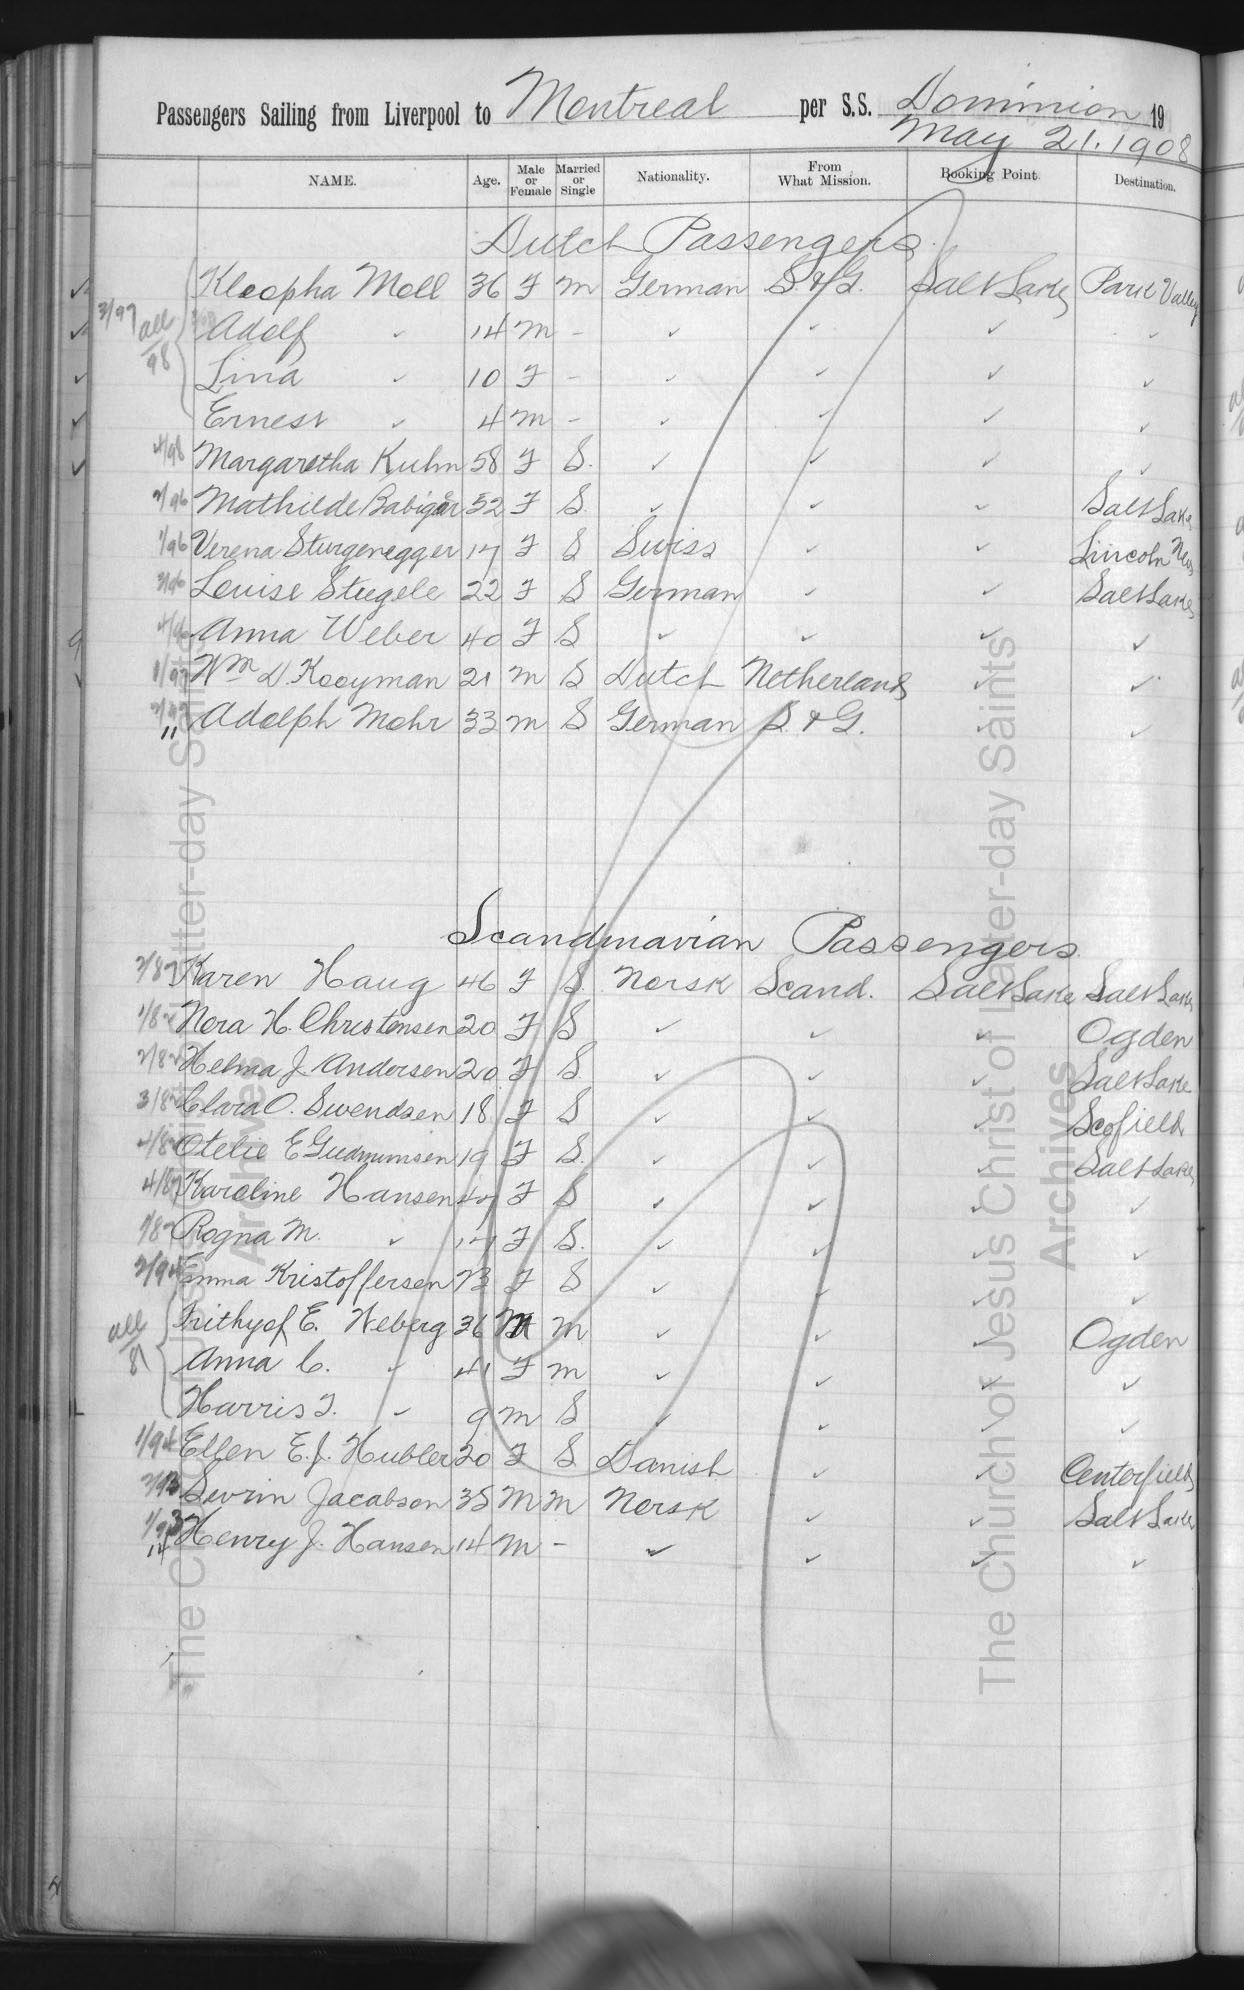 Passengers Sailing from Liverpool to Montreal per S.S. Dominion 19
May 21. 1908
NAME. Age. Male or Female Married or Single Nationality. From What Mission. Booking Point. Destination.
Dutch Passengers
3/97 all/98 Kleopha Moll 36 F M German S. & G. Salt Lake Park Valley
Adolf ✓ 14 M - ✓ ✓ ✓ ✓
Lina ✓ 10 F - ✓ ✓ ✓ ✓
Ernest ✓ 4 M - ✓ ✓ ✓ ✓
4/98 Margaretha Kuhn 58 F S. ✓ ✓ ✓ ✓
Mathilde 52 F S. ✓ ✓ ✓ Salt Lake
1/96 Verena Sturgenegger 17 F S Swiss ✓ ✓ Lincoln
3/96 Louise Stegele 22 F S German ✓ ✓ Salt Lake
4/96 Anna Weber 40 F S ✓ ✓ ✓ ✓
1/97 Wm D. Kooyman 21 M S Dutch Netherlands ✓ ✓
2/97 Adolph Mohr 33 M S German S. & G. ✓ ✓
11
Scandinavian Passengers
Karen Haug 46 F S. Norsk Scand. Salt Lake Salt Lake
Nora H. Christensen 20 F S ✓ ✓ ✓ Ogden
Helma J. Andersen 20 F S ✓ ✓ ✓ Salt Lake
Clara O. Swendsen 18 F S ✓ ✓ ✓ Scofield
Otelie E Gudmunsen 19 F S. ✓ ✓ ✓ Salt Lake
Karoline Hansen 47 F S ✓ ✓ ✓ ✓
Rogna M. ✓ 17 F S. ✓ ✓ ✓ ✓
2/94 Emma Kristoffersen 23 F S ✓ ✓ ✓ ✓
all/81 Frithyof E. Weberg 36 M M ✓ ✓ ✓ Ogden
Anna C. ✓ 41 F M ✓ ✓ ✓ ✓
Harris F. ✓ 9 M S ✓ ✓ ✓ ✓
1/94 Ellen E.J. Hubler 20 F S Danish ✓ ✓ Centerfield
2/93 Sevrin Jacobson 38 M M Norsk ✓ ✓ Salt Lake
1/93 Henry J. Hansen 14 M - ✓ ✓ ✓ ✓
14
The Church of Jesus Christ of Latter-day Saints
Archives
The Church of Jesus Christ of Latter-day Saints
Archives